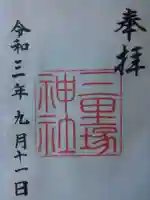 奉拝
三里塚
神社
令和三年九月十一日